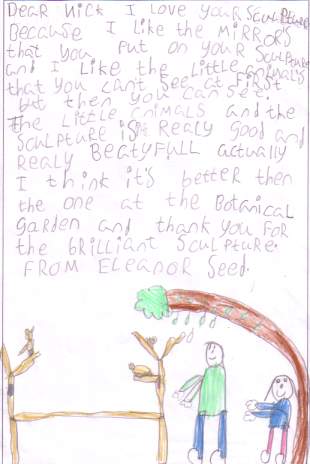 DEAR NICK I LOVE YOUR SCULPTURE
BECAUSE I LIKE the MIRROR'S
that you PUT ON YOUR SCULPTURE
and I LIKE the LittLE ANIMAL'S
that you cant see at First
but then you can see.
The LittLE ANIMALS and the
SCULPTURE is REALY GOOD and
REALY BEATYFULL actually
I think it's better then
the one at the BOTANICAL
GARDEN and thank you FOR
the BRILLIANT SCULPTURE.
FROM ELEANOR Seed.